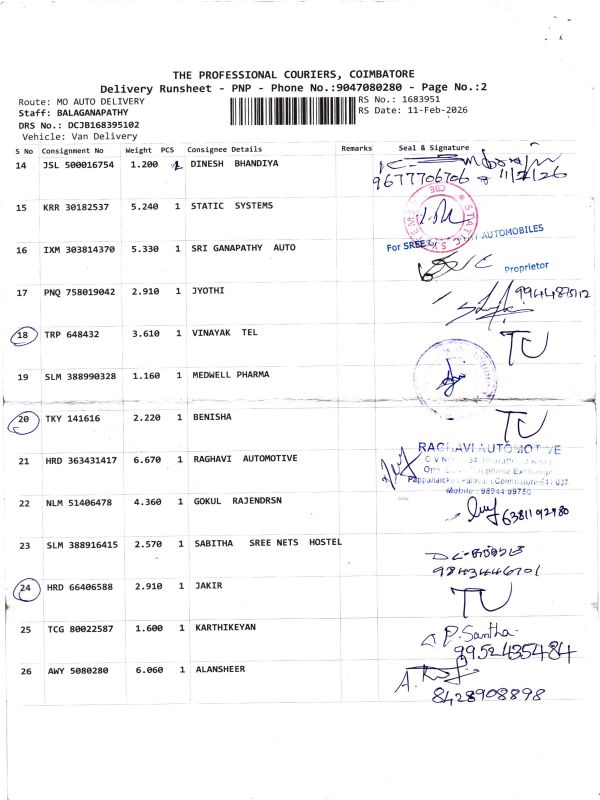 THE PROFESSIONAL COURIERS, COIMBATORE
Delivery Runsheet - PNP - Phone No.:9047080280 - Page No.:2
Route: MO AUTO DELIVERY
RS No.: 1683951
Staff: BALAGANAPATHY
RS Date: 11-Feb-2026
DRS No.: DCJB168395102
Vehicle: Van Delivery
S No Consignment No Weight PCS Consignee Details Remarks Seal & Signature
14 JSL 500016754 1.200 1 DINESH BHANDIYA
9677706706 11/2/26
15 KRR 30182537 5.240 1 STATIC SYSTEMS
STATIC CBE
16 IXM 303814370 5.330 1 SRI GANAPATHY AUTO
For SREE AUTOMOBILES
Proprietor
17 PNQ 758019042 2.910 1 JYOTHI
18 TRP 648432 3.610 1 VINAYAK TEL TU
19 SLM 388990328 1.160 1 MEDWELL PHARMA
20 TKY 141616 2.220 1 BENISHA TU
21 HRD 363431417 6.670 1 RAGHAVI AUTOMOTIVE
RAGHAVI AUTOMOTIVE
Telephone Exchange
Coimbatore-641 037
Mobile : 98944 99750
22 NLM 51406478 4.360 1 GOKUL RAJENDRSN
6381192980
23 SLM 388916415 2.570 1 SABITHA SREE NETS HOSTEL
9843446701
24 HRD 66406588 2.910 1 JAKIR TU
25 TCG 80022587 1.600 1 KARTHIKEYAN
P. Santha
9952435484
26 AWY 5080280 6.060 1 ALANSHEER
8428908898